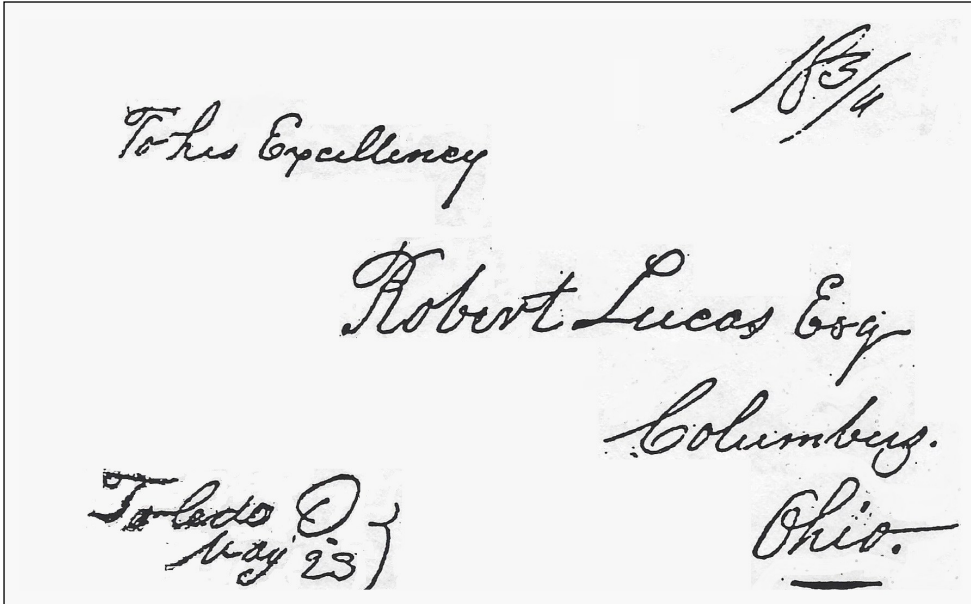 18 3/4
To his Excellency
Robert Lucas Esq
Columbus.
Ohio.
Toledo O.
May 23